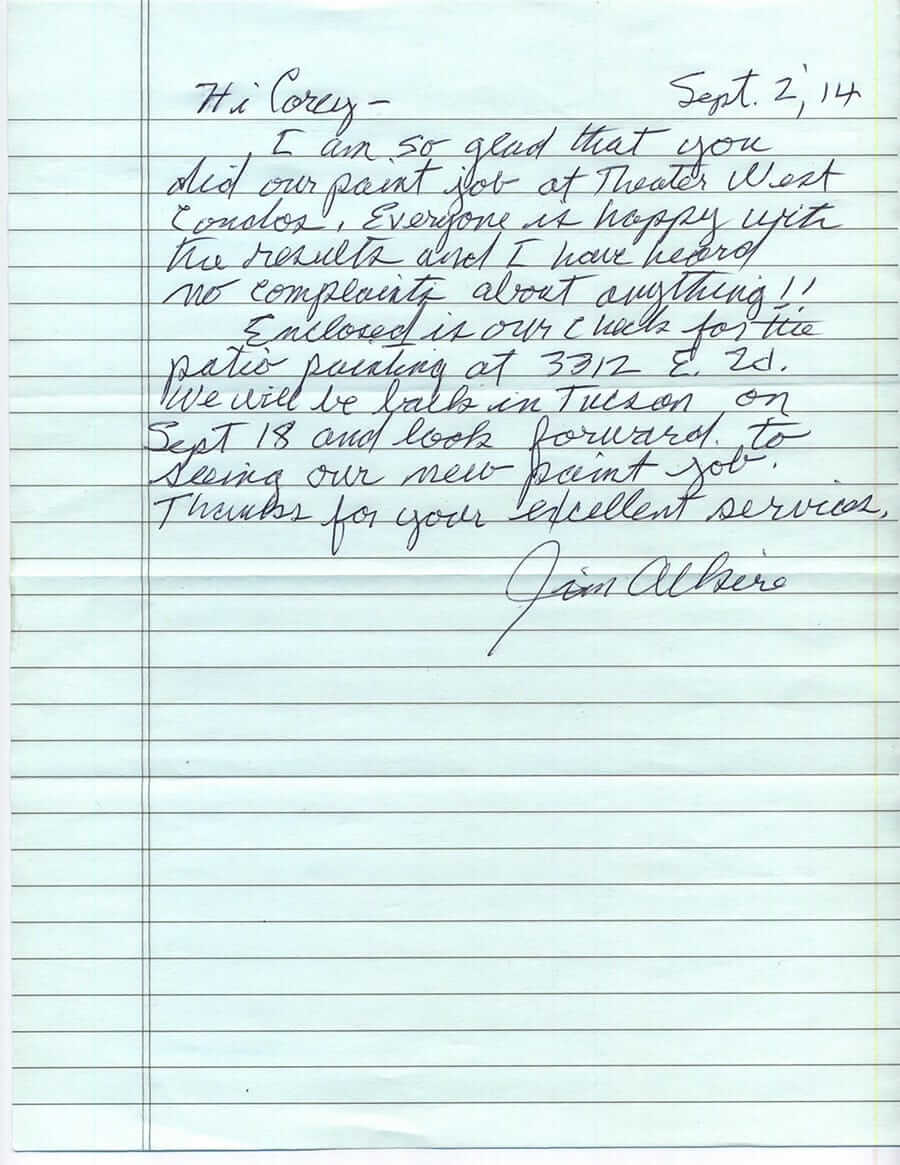 Hi Corey – Sept. 2, '14
I am so glad that you
did our paint job at Theater West
Condos. Everyone is happy with
the results and I have heard
no complaints about anything!!
Enclosed is our check for the
patio painting at 3312 E. 2d.
We will be back in Tucson on
Sept 18 and look forward to
seeing our new paint job.
Thanks for your excellent services.
Jim